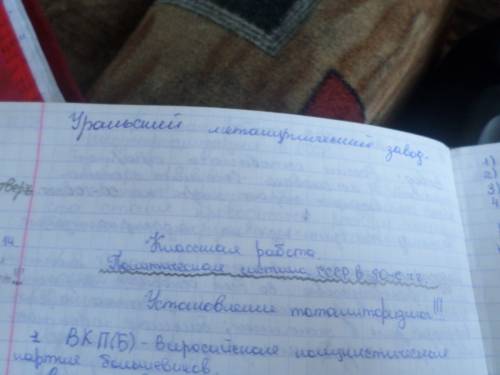 Уральский металургический завод.
Классная работа.
Политическая система СССР в 30-е гг.
Установление тоталитаризма!!!
1 ВКП(б) - Всеросийская комунистическая
партия большевиков.
1)
2)
3)
4